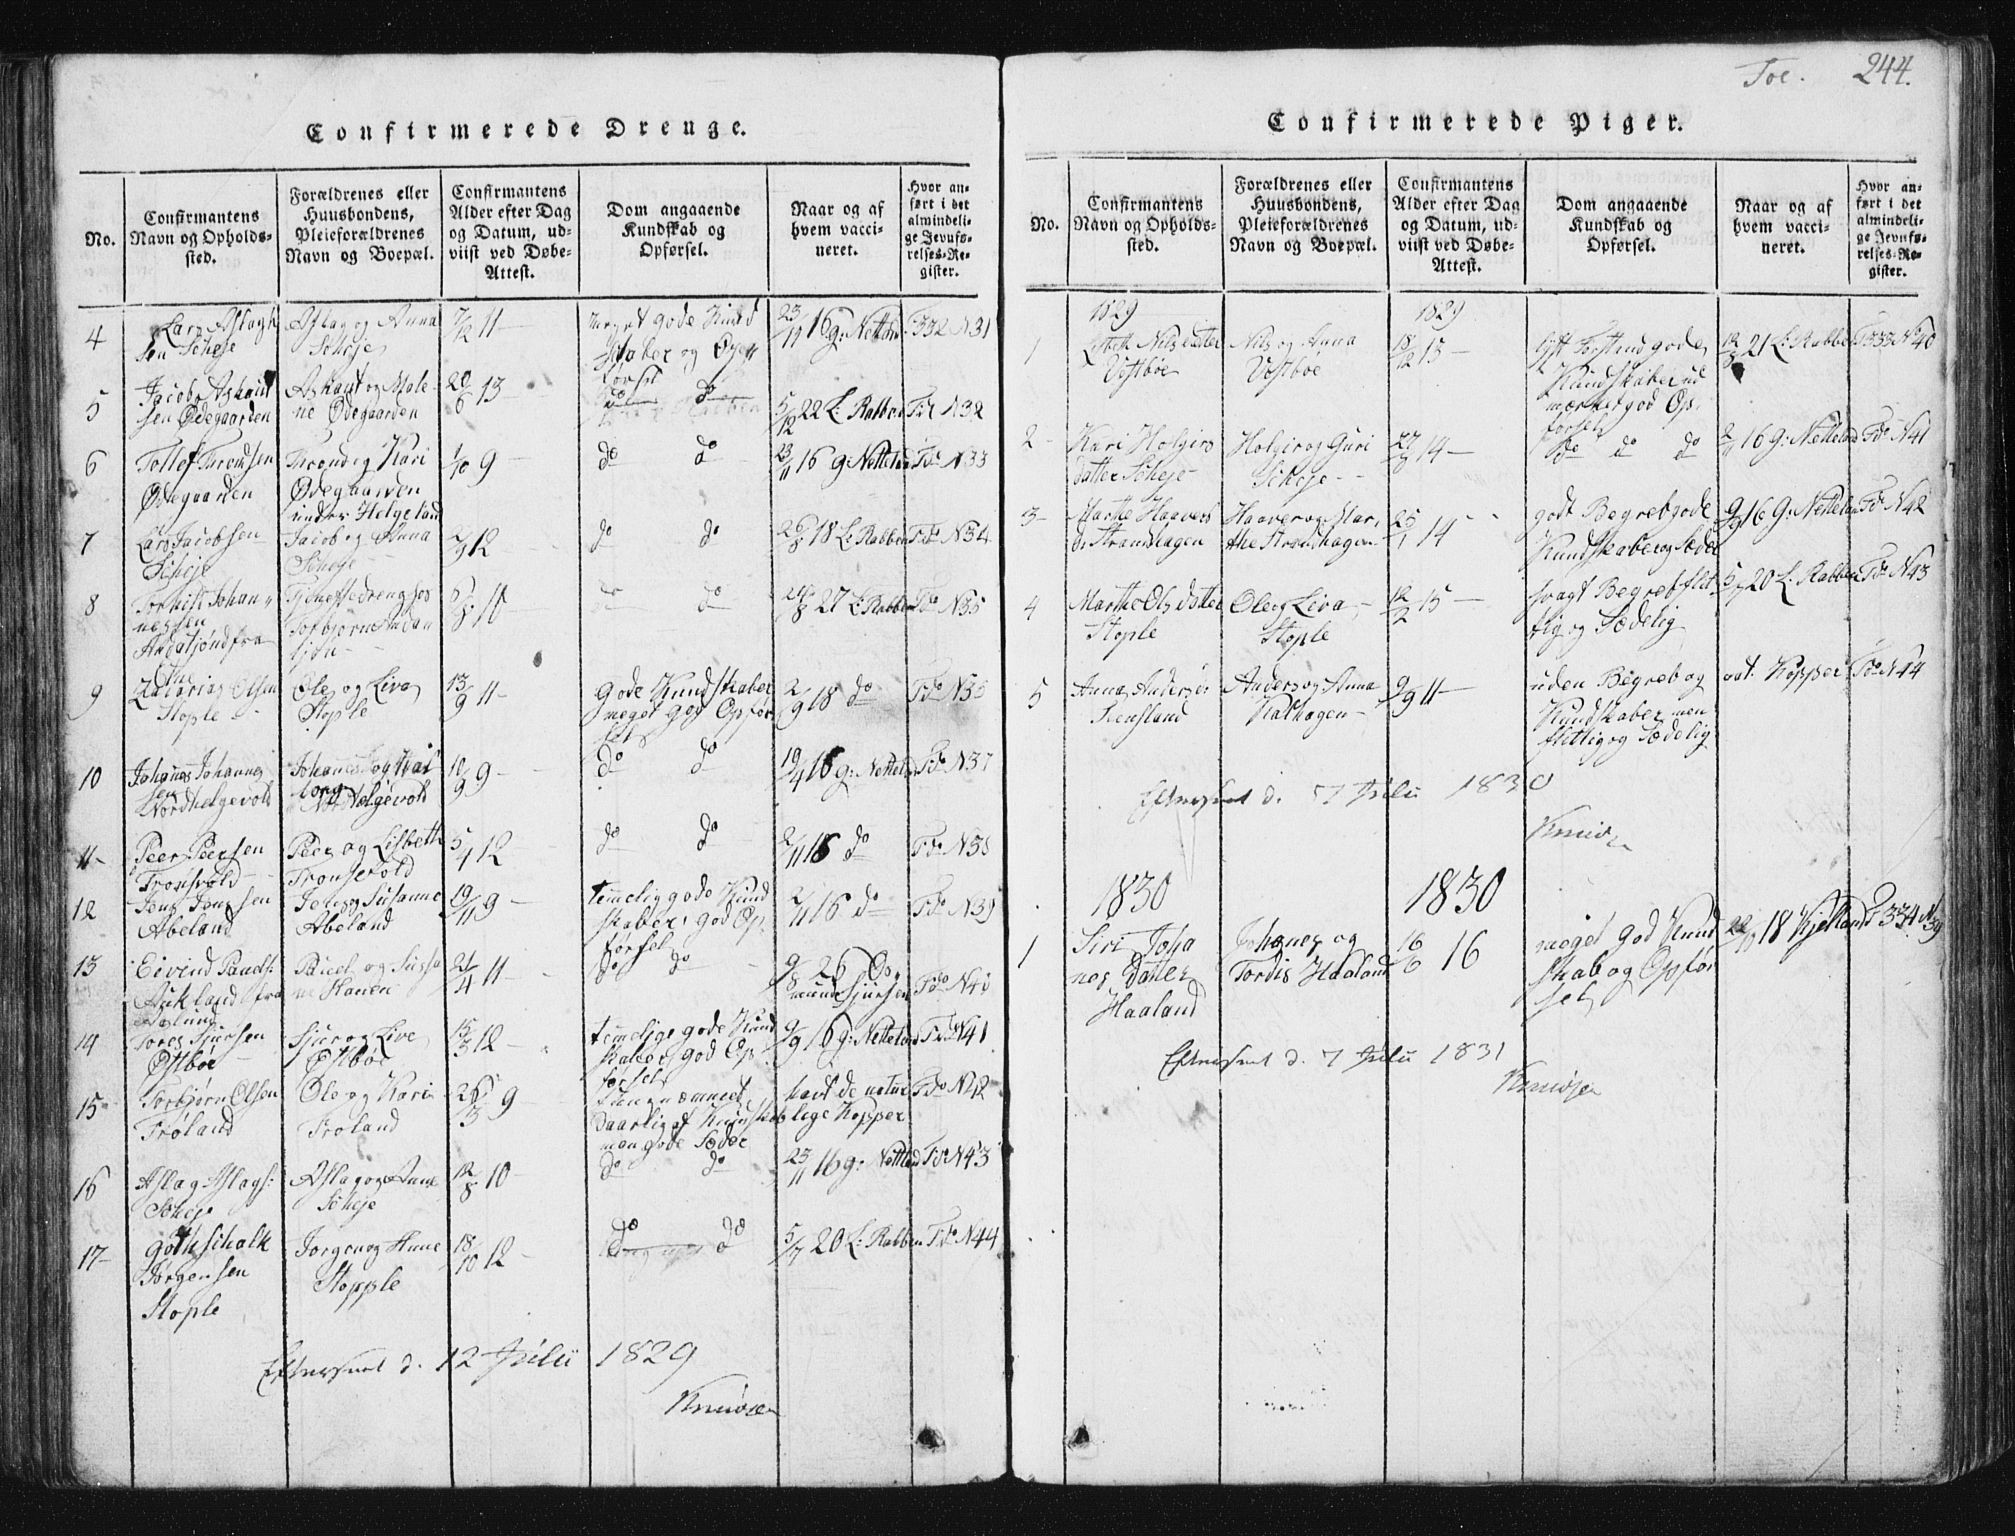 Toe. 244.
Confirmerede Drenge.
No.
Confirmantens
Navn og Opholds-
sted.
Forældrenes eller
Huusbondens,
Pleieforældrenes
Navn og Boepæl.
Confirmantens
Alder efter Dag
og Datum, ud-
viist ved Døbe-
Attest.
Dom angaaende
Kundskab og
Opførsel.
Naar og af
hvem vacci-
neret.
Hvor an-
ført i det
almindeli-
ge Jevnfø-
relses-Re-
gister.
4
Lars Aslagh
sen Scheje
Aslag og Anna
Scheje
7/12 11 –
meget gode Kund
skaber og Opf
førsel
23/11 16 g: Netteland
F 332 N 31
5
Jacob Ashaut
sen Ødegaarden
Ashaut og Male-
ne Ødegaarden
20/6 13
do do
5/12 22 L: Rabben
F do N 32
6
Tollef Trondsen
Ødegaarden
Trond og Kari
Ødegaarden
under Helgeland
1/10 9 –
do do
23/11 16 g: Netteland
F do N 33
7
Lars Jacobsen
Scheje
Jacob og Anna
Scheje
2/9 12
do do
26/8 18 L: Rabben
F do N 34
8
Johan-
nessen
Tjenestedreng hos
6/8 10
do do
24/8 27 L: Rabben
F do N 35
9
Zacarias Olsen
Stople
Ole og Liva
Stople
13/9 11 –
Gode Kundskaber
meget god Opfør
sel
2/9 18 do
F do N 36
10
Johanes Johanne
sen
Nordhelgevold
Johanes og Wal
borg
Nordhelgevold
10/9 9 –
do do
19/4 16 g: Netteland
F do N 37
11 –
Peer Peersen
Tronsvold
Peer og Lisbeth
Tronsevold
5/4 12 –
do do
2/11 16 do
F do N 38
12
Jens Jensen
Abeland
Jens og Susanne
Abeland
19/11 9 –
temmelig gode Kund
skaber, god Op
førsel
2/11 16 do
F do N 39
13
Eivind Pouls:
Aukland fra
Poul og Susa
ne
21/4 11 –
do do
9/8 26 Os-
mund Sjursen
F do N 40
14
Tores Sjursen
Østbøe
Sjur og Live
Østbøe
15/3 12 –
temelige gode Kund
skaber, god Op
førsel
9/9 16 g: Netteland
F do N 41
15
Torbjørn Olsen
Trøland
Ole og Kari
Trøland
26/3 9
maadelig af Kundskab
men gode Sæder
havt de natur
lige Kopper
F do N 42
16
Aslag Aslags:
Scheje
Aslag og Anne
Scheje
12/8 10 –
do do
23/11 16 g: Netteland
F do N 43
17 –
Gothschalk
Jørgensen
Stople
Jørgen og Anne
Stopple
18/10 12 –
do do
5/7 20 L: Rabben
F do N 44
Efterseet d. 12 Julii 1829
Knudsen
Confirmerede Piger.
No.
Confirmantens
Navn og Opholds-
sted.
Forældrenes eller
Huusbondens,
Pleieforældrenes
Navn og Boepæl.
Confirmantens
Alder efter Dag
og Datum, ud-
viist ved Døbe-
Attest.
Dom angaaende
Kundskab og
Opførsel.
Naar og af
hvem vacci-
neret.
Hvor an-
ført i det
almindeli-
ge Jevnfø-
relses-Re-
gister.
1829 1829
1
Lisbeth Nilsdatter
Vestbøe
Nils og Anna
Vestbøe
18/12 15 –
Forstand gode
Kundskaber ud
mærket god Op-
førsel
21 L: Rabben
F 333 N 40
2 –
Kari Holgers
datter Scheje
Holger og Guri
Scheje
14 –
do do do
2/11 16 g: Netteland
F do N 41
3 –
Marthe Haavers
d: Strandhagen
Haaver og Mar-
the Strandhagen
25/1 14
godt Begreb gode
Kundskaber og Sæder
9/9 16 G: Netteland
F do N 42
4
Marthe Olsdatter
Stople
Ole og Liva
Stople
12/2 15 –
svagt Begreb flit
tig og Sædelig
5/7 20 L. Rabben
F do N 43
5
Anna Anders d:
Anders og Anna
Kalhagen
9/9 11 –
uden Begreb og
Kundskaber, men
flittig og Sædelig
nat. Kopper
F do N 44
Efterseet d. 7 Julii 1830
Knudsen
1830 1830
1
Siri Joha
nes Datter
Haaland
Johanes og
Tordis Haaland
16/6 16
meget god Kund
skab og Opfør
sel
22/11 18 Kjelland
F 334 N 39
Efterseet d. 7 Julii 1831
Knudsen